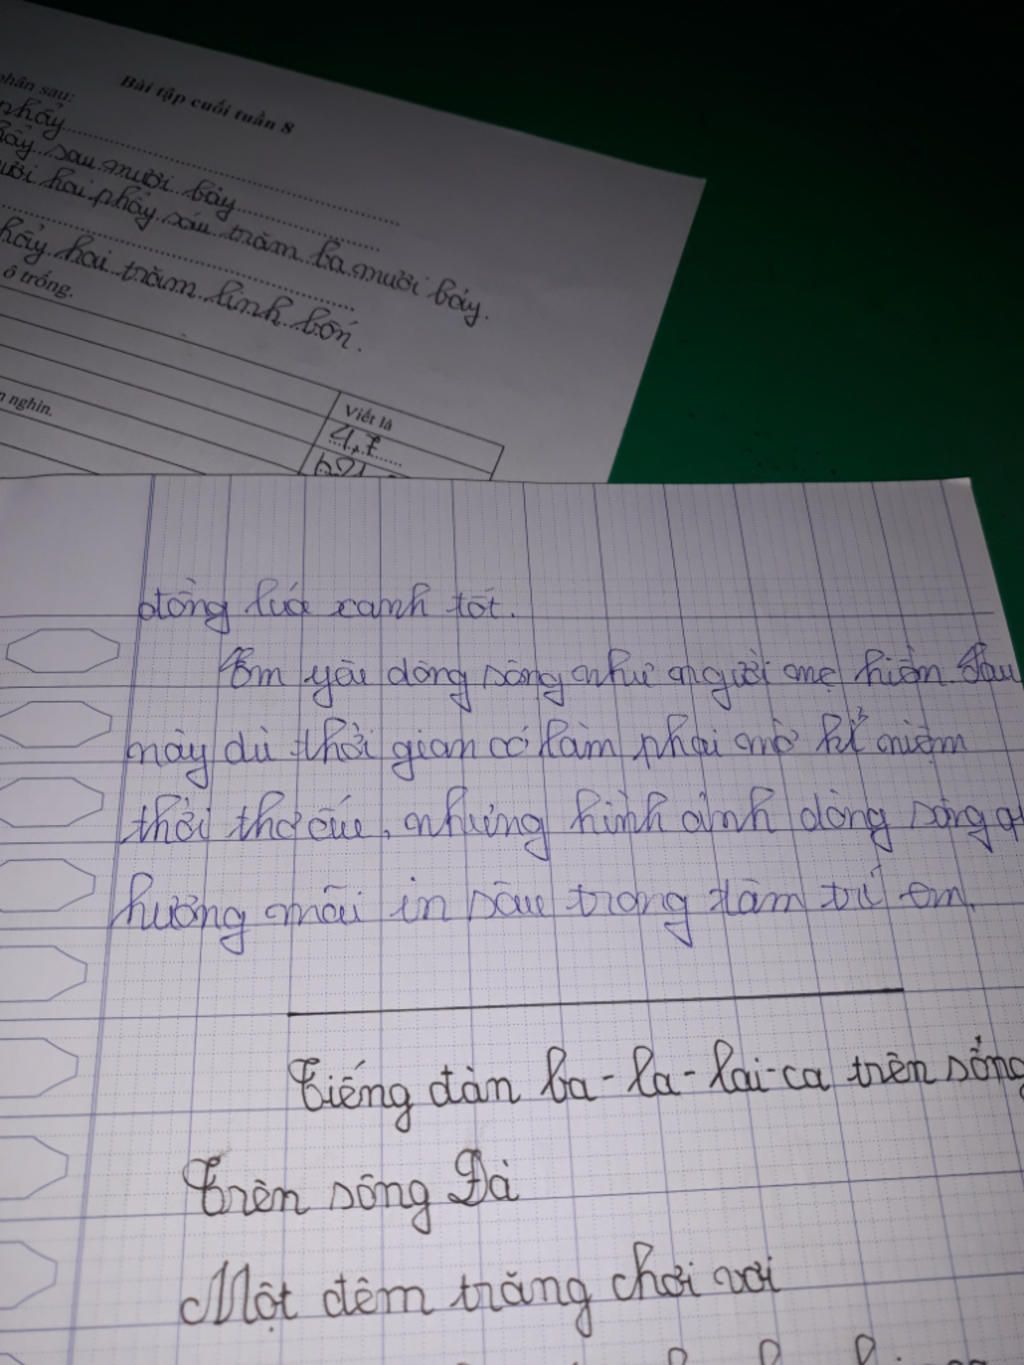 Bài tập cuối tuần 8
phân sau:
phẩy
phẩy sáu mươi bảy
mười hai phẩy sáu trăm ba mươi bảy.
phẩy hai trăm linh bốn.
ô trống.
Viết là
4,7
n nghìn.
đồng lúa xanh tốt.
Em yêu dòng sông như người mẹ hiền. Sau
này dù thời gian có làm phai mờ kỉ niệm
thời thơ ấu, nhưng hình ảnh dòng sông
hương mãi in sâu trong tâm trí em.
Tiếng đàn ba-la-lai-ca trên sông
Trên sông Đà
Một đêm trăng chơi vơi